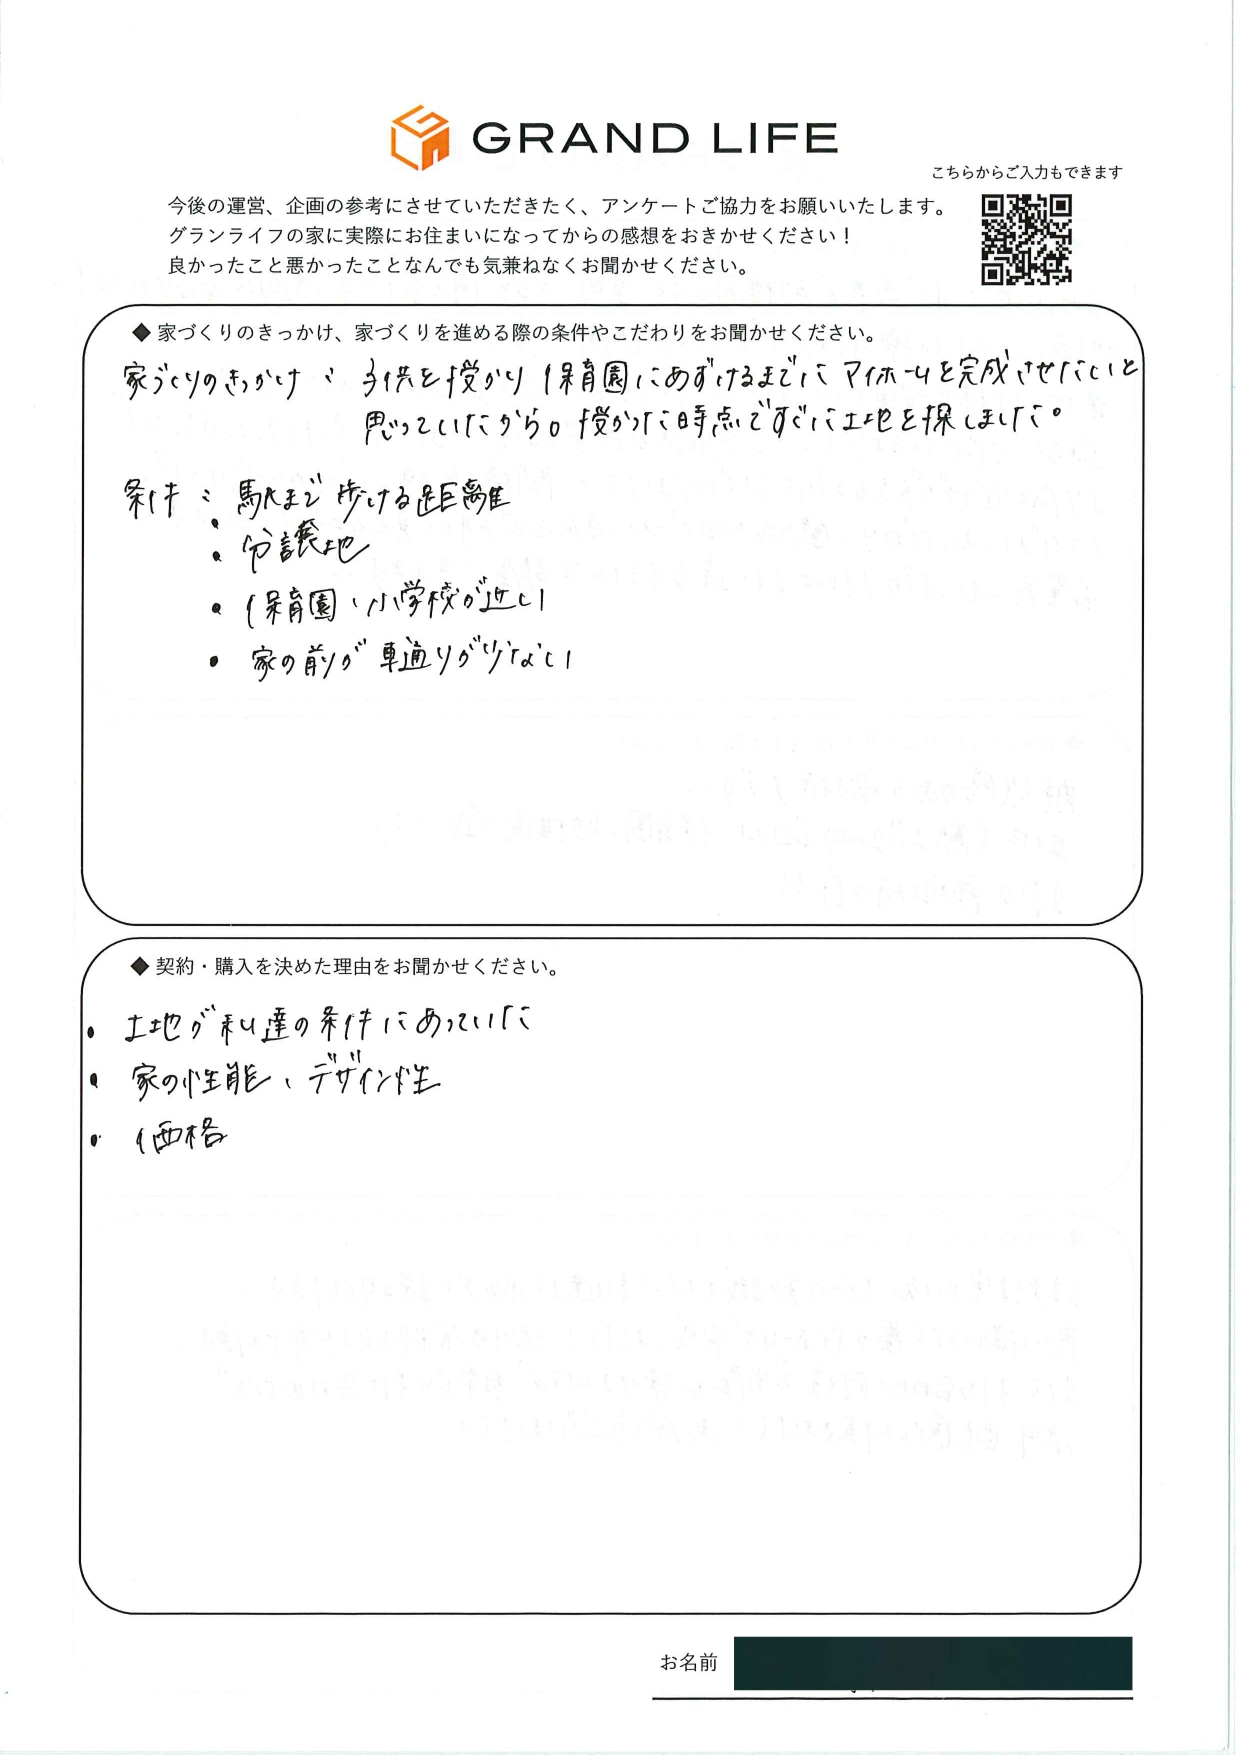 GRAND LIFE
こちらからご入力もできます
今後の運営、企画の参考にさせていただきたく、アンケートご協力をお願いいたします。
グランライフの家に実際にお住まいになってからの感想をおきかせください！
良かったこと悪かったことなんでも気兼ねなくお聞かせください。
◆ 家づくりのきっかけ、家づくりを進める際の条件やこだわりをお聞かせください。
家づくりのきっかけ : 子供を授かり保育園にあずけるまでにマイホームを完成させたいと
思っていたから。授かった時点ですぐに土地を探しました。
条件 : 駅まで歩ける距離
・分譲地
・保育園、小学校が近い
・家の前が車通りが少ない
◆ 契約・購入を決めた理由をお聞かせください。
・土地が私達の条件にあっていた
・家の性能、デザイン性
・価格
お名前